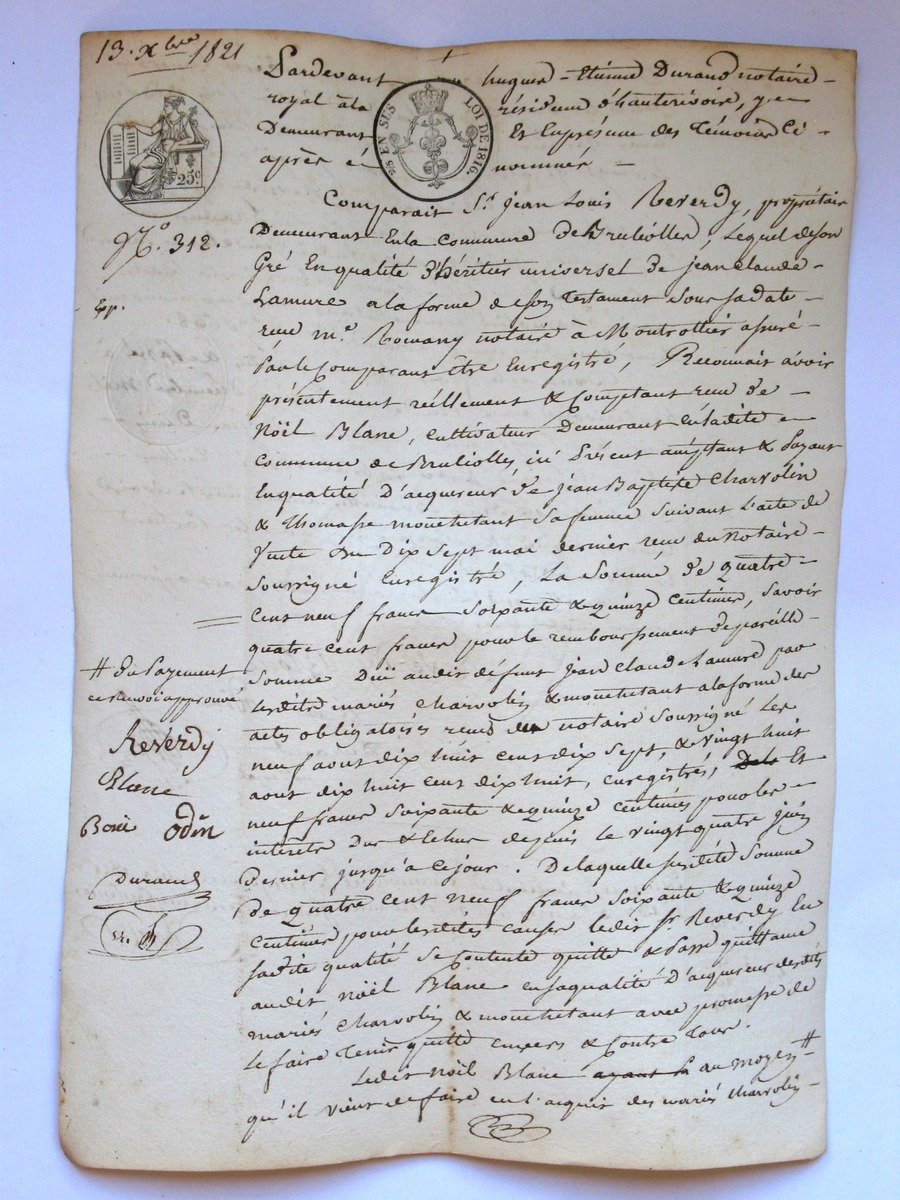 13. Xbre 1821
Pardevant hugues - Etienne Durand notaire -
royal à la résidence d'hauterivoire, y
Demeurant Et En présence des Témoins Ci -
après nommés -
25 EN SUS LOI DE 1816.
25 c
N.o 312.
Exp.
Comparait Sr. jean Louis Reverdy, propriétaire
Demeurant En la Commune de Brullioles, Lequel de son
Gré En qualité d'héritier universel de jean claude -
Lamure a la forme de son Testament Sous sa date -
reçu me. Romany notaire à Montrottier assuré -
Par le Comparant être Enregistré, Reconnait avoir
présentement réellement & Comptant reçu de -
Noël Blanc, Cultivateur Demeurant en ladite
Commune de Brullioles, ici Présent acceptant & Payant
En qualité D'acquereur de jean Baptiste Charvolin
& Thomasse mouchetant sa femme suivant L'acte de
Vente du Dix Sept mai dernier reçu du Notaire -
Soussigné Enregistré, La Somme de quatre -
Cent neuf francs Soixante & quinze Centimes, Savoir
quatre cent francs pour le remboursement de pareille -
Somme Duë audit défunt jean Claude Lamure par
lesdits mariés Charvolin & mouchetant a la forme des
actes obligatoires reçus du notaire Soussigné Les
neuf aout dix huit cent dix Sept, & vingt huit
aout dix huit cent dix huit, enregistrés, Et
neuf francs Soixante & quinze Centimes pour les -
intérêts dus & échus depuis le vingt quatre juin
Dernier jusqu'à ce jour. De laquelle susdite Somme
De quatre Cent neuf francs Soixante & quinze
Centimes pour lesdites causes ledit Sr. Reverdy En
sadite qualité Se Contente quitte & Passe quittance
audit Noël Blanc en sa qualité D'acquereur desdits
mariés Charvolin & mouchetant avec promesse de
le faire Tenir quitte envers & Contre Tous.
Ledit Noël Blanc ayant au moyen #
qu'il vient de faire en l'acquit des mariés Charvolin -
# du Payement
ce renvoi approuvé
Reverdy
Blanc
Odin
Durand